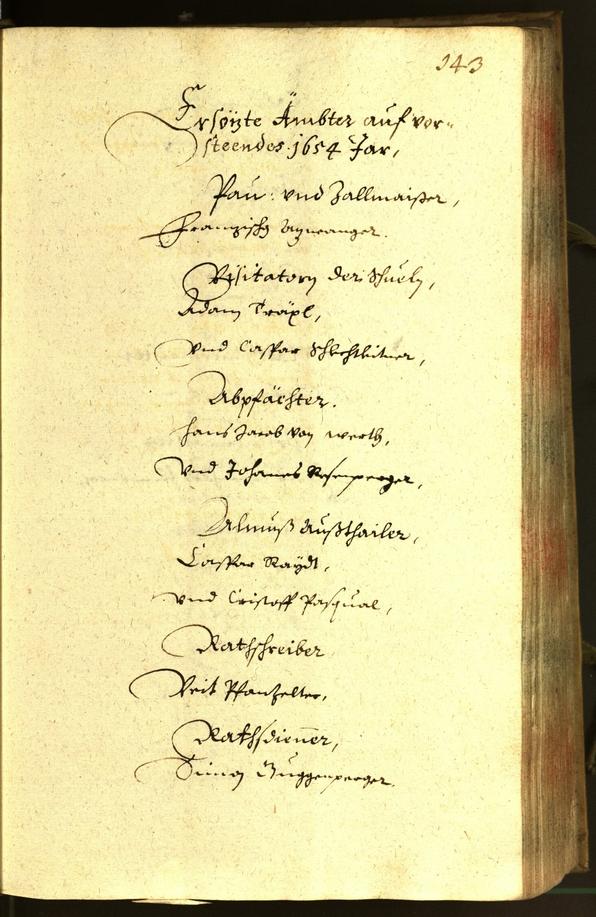 143
Ersözte Ämbter auf vor-
steendes 1654 Jar,
Pau: vnd Zallmaister,
Franzisch
Visitatorn der Schueln,
Adam Träxl,
vnd Caspar Schlechtleitner,
Abpfächter.
Hans Jacob von Werth,
vnd Johanes Rosenperger,
Almueß außthailer,
Caspar Raydt,
vnd Cristoff Pasqual,
Rathschreiber
Veit Pfanzelter,
Rathsdiener,
Simon Guggenperger.